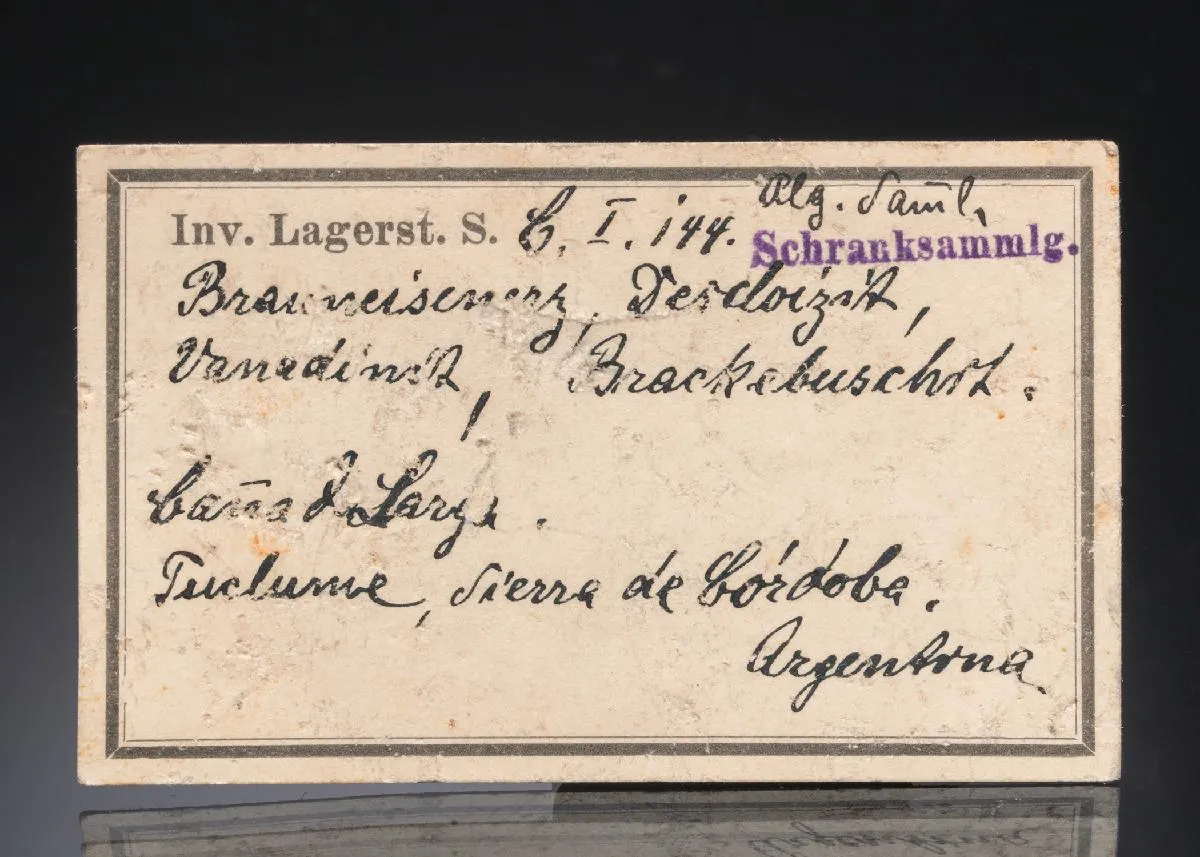 Alg. Saml.
Inv. Lagerst. S. C. I. 144. Schranksammlg.
Brauneisenerz, Descloizit,
Vanadinit, Brackebuschit.
Cañada Larga.
Tuclume, Sierra de Córdoba.
Argentina.